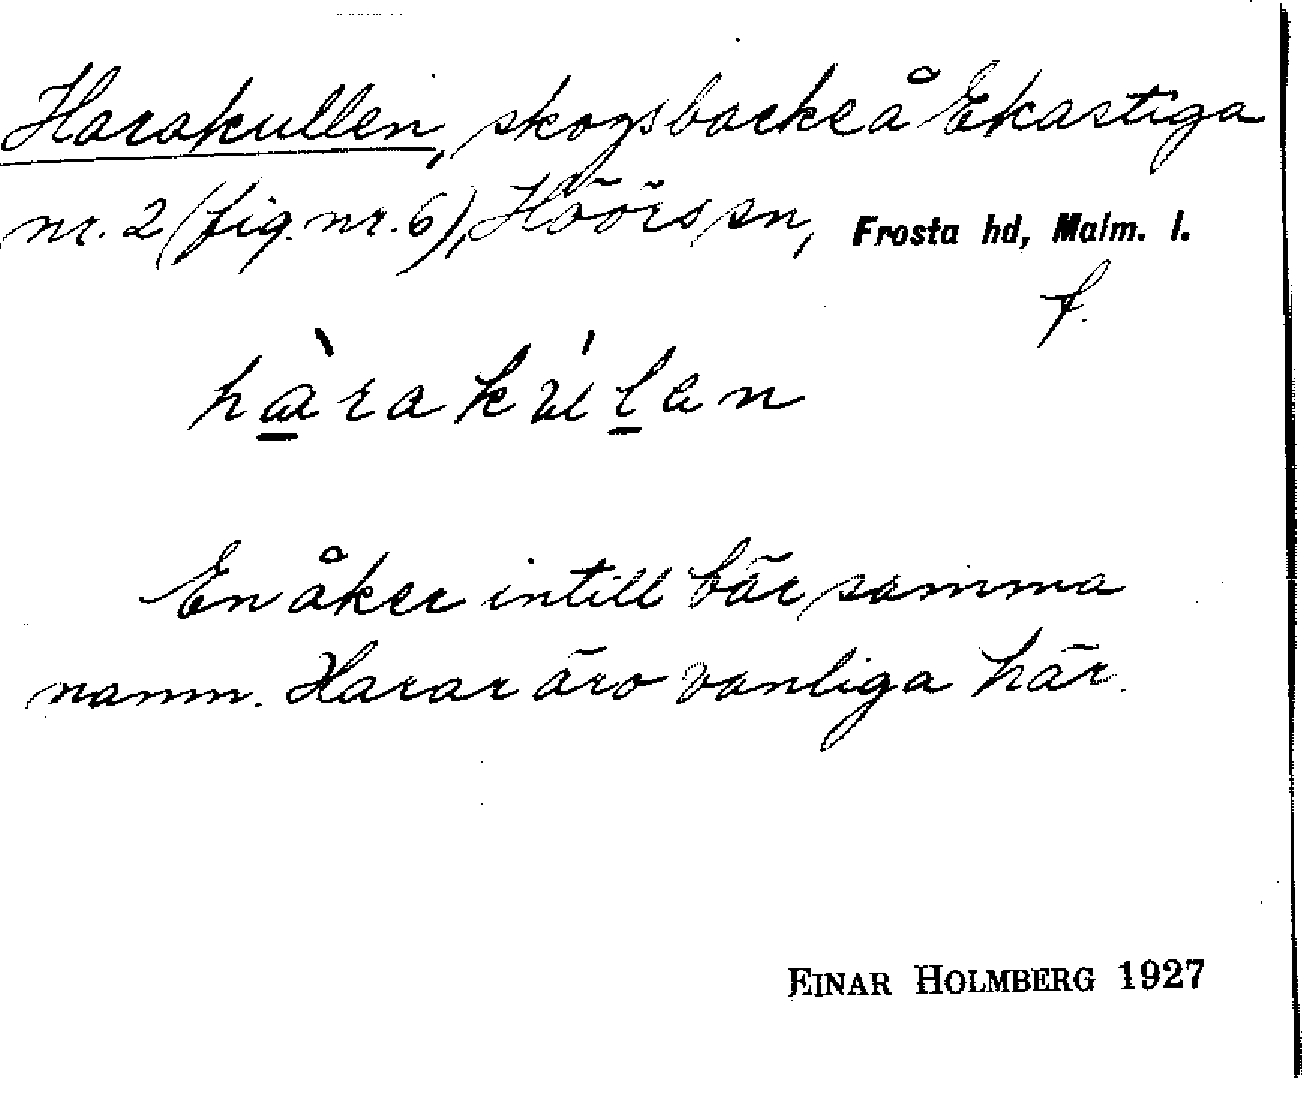 Harakullen, skogsbacke å Ekastiga
nr. 2 (fig. nr. 6), Höörs sn, Frosta hd, Malm. l.
f.
hàrakúlen
En åker intill bär samma
namn. Harar äro vanliga här.
EINAR HOLMBERG 1927